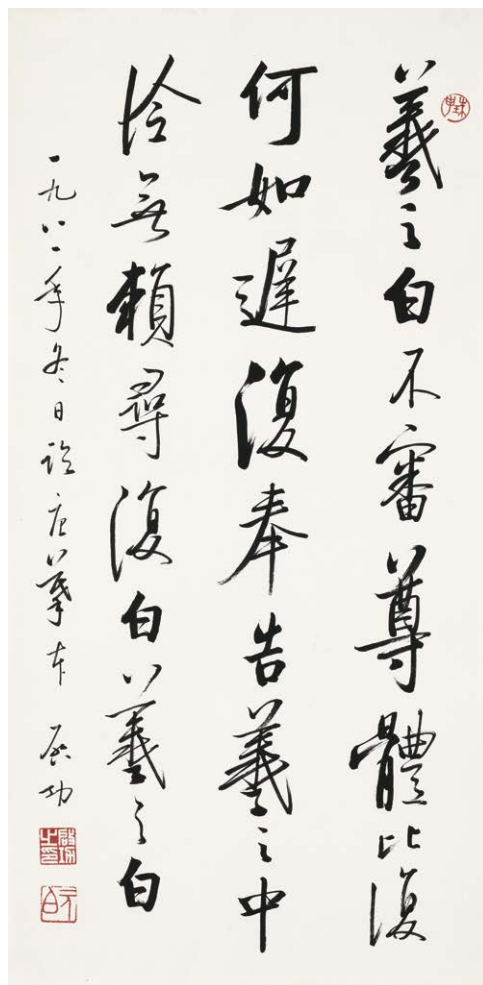 羲之白不審尊體比復
何如遲復奉告羲之中
冷無賴尋復白羲之白
一九八一年冬日臨唐摹本 启功
啟功之印
元白